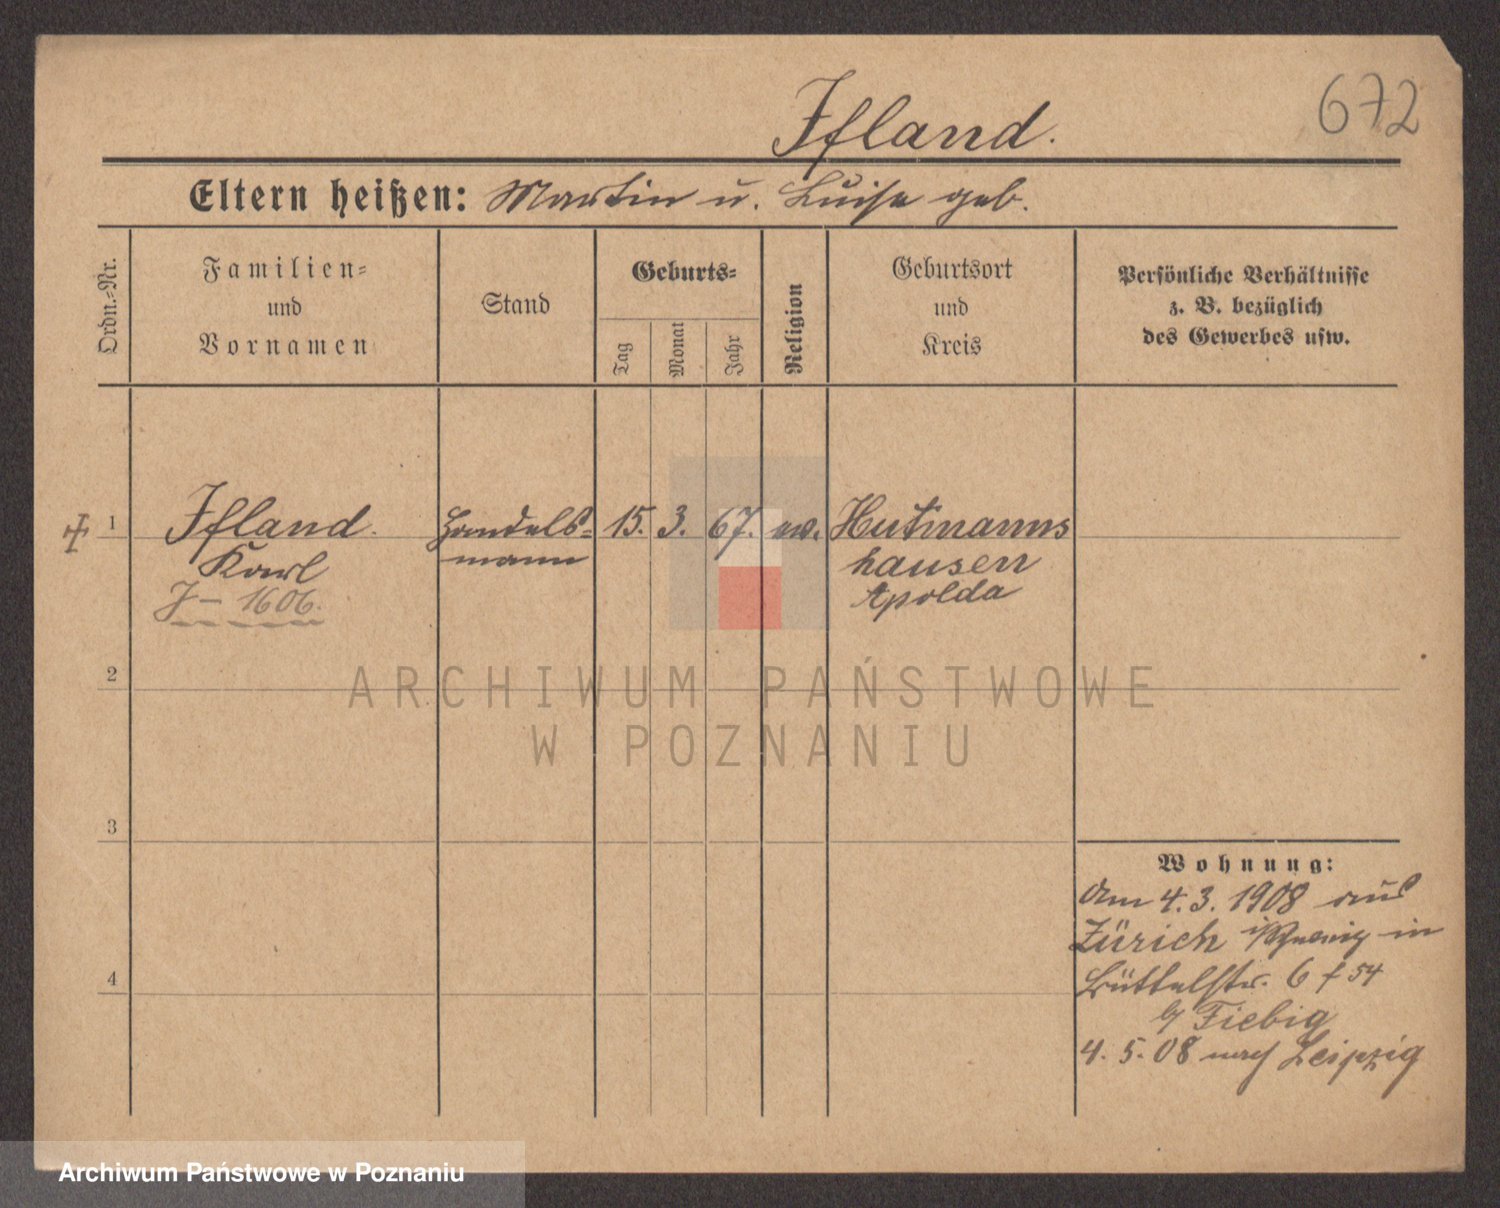 672
Ifland.
Eltern heißen: Martin u. Luise geb.
Ordn.-Nr.
Familien-
und
Vornamen
Stand
Geburts-
Tag
Monat
Jahr
Religion
Geburtsort
und
Kreis
Persönliche Verhältnisse
z. B. bezüglich
des Gewerbes usw.
1 Ifland. Handels- 15. 3. 67. ev. Hutmanns
Karl mann hausen
J- 1606. Apolda
2
ARCHIWUM PAŃSTWOWE
W POZNANIU
3
Wohnung:
Am 4.3.1908 aus
Zürich in
4
Büttelstr. 6 f 54
b/ Fiebig
4.5.08 nach Leipzig
Archiwum Państwowe w Poznaniu